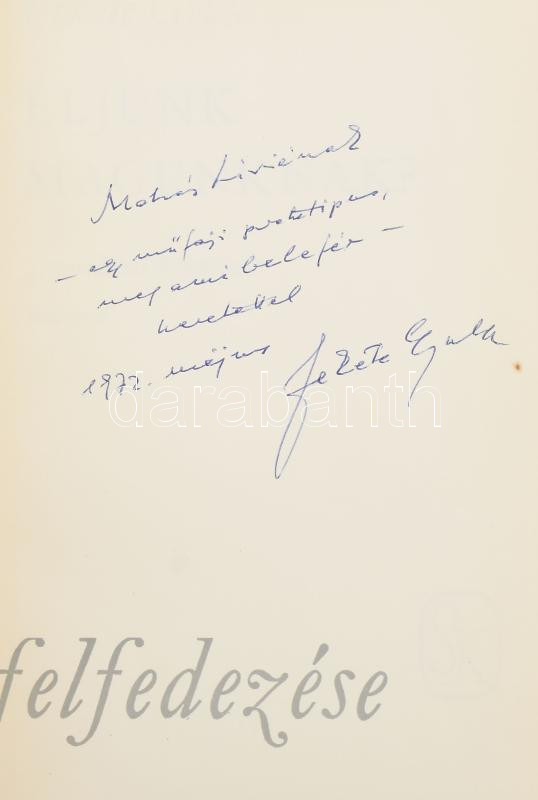 Mátrás Líviának
– egy műfaji prototípus,
meg ami belefér –
szeretettel
1972. május
Fekete Gyula
darabanth
felfedezése